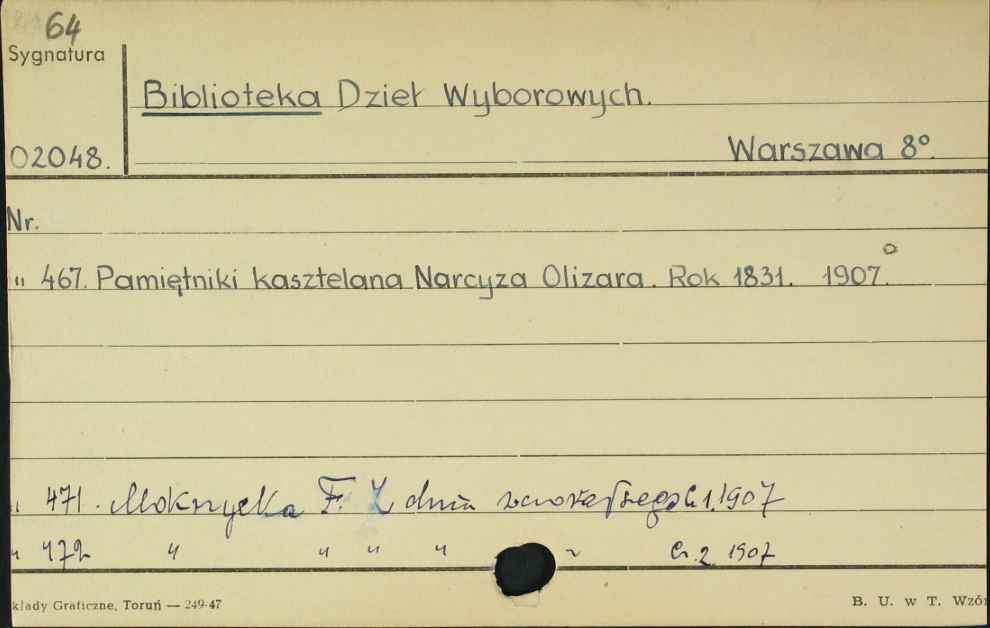 64
Sygnatura
Biblioteka Dzieł Wyborowych.
02048.
Warszawa 8°.
Nr.
" 467. Pamiętniki kasztelana Narcyza Olizara. Rok 1831. 1907.
" 471. Mokrzycka F. Z dnia 1.1907
" 472 " " " " " Cz. 2 1907
kłady Graficzne, Toruń — 249-47
B. U. w T. Wzór